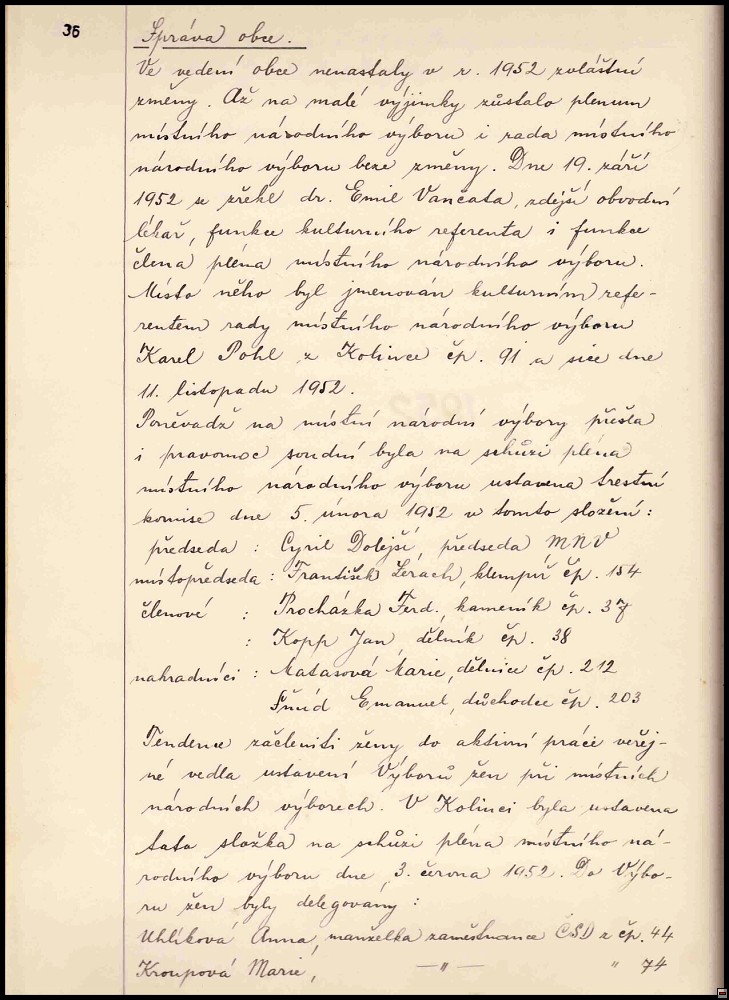 36
Správa obce.
Ve vedení obce nenastaly v r. 1952 zvláštní
změny. Až na malé výjimky zůstalo plenum
místního národního výboru i rada místního
národního výboru beze změny. Dne 19. září
1952 se zřekl dr. Emil Vančata, zdejší obvodní
lékař, funkce kulturního referenta i funkce
člena pléna místního národního výboru.
Místo něho byl jmenován kulturním refe-
rentem rady místního národního výboru
Karel Pohl z Kolince čp. 91 a sice dne
11. listopadu 1952.
Poněvadž na místní národní výbory přešla
i pravomoc soudní byla na schůzi pléna
místního národního výboru ustavena trestní
komise dne 5. února 1952 v tomto složení:
předseda : Cyril Dolejší, předseda MNV
místopředseda : František Lerach, klempíř čp. 154
členové : Procházka Ferd., kameník čp. 37
: Kopp Jan, dělník čp. 38
nahradníci : Matasová Marie, dělnice čp. 212
Šmíd Emanuel, důchodce čp. 203
Tendence začleniti ženy do aktivní práce veřej-
né vedla ustavení Výborů žen při místních
národních výborech. V Kolinci byla ustavena
tato složka na schůzi pléna místního ná-
rodního výboru dne 3. června 1952. Do Výbo-
ru žen byly delegovány :
Uhlíková Anna, manželka zaměstnance ČSD z čp. 44
Kroupová Marie, —"— " 74